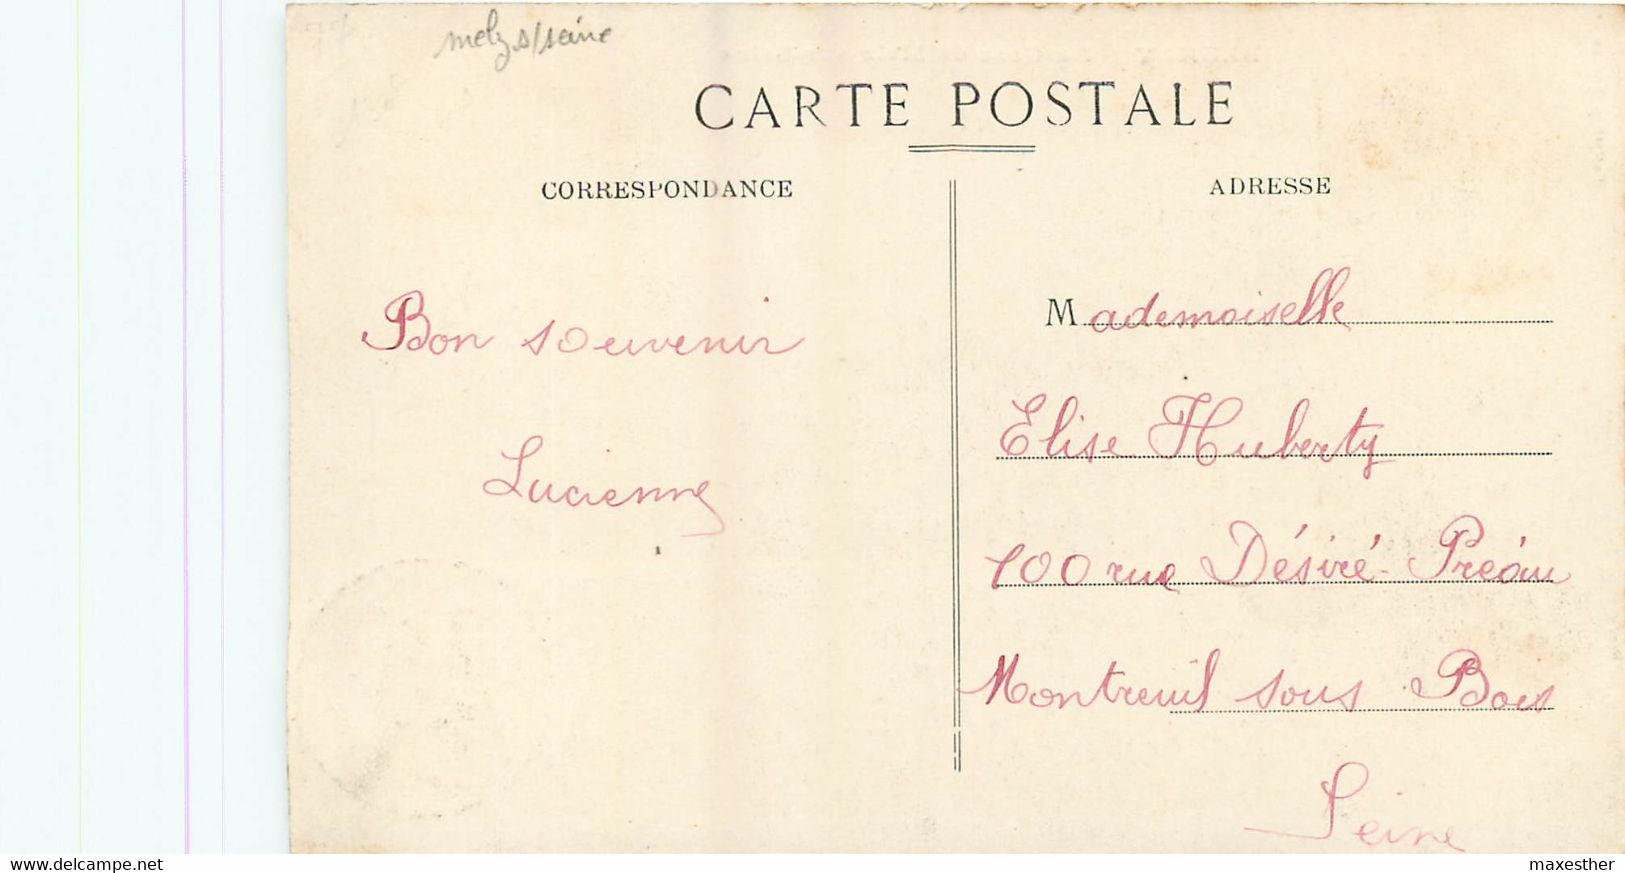 melz s/seine
CARTE POSTALE
CORRESPONDANCE
ADRESSE
Bon souvenir
Lucienne
Mademoiselle
Elise Huberty
100 rue Désiré-Préau
Montreuil sous Bois
Seine
www.delcampe.net
maxesther